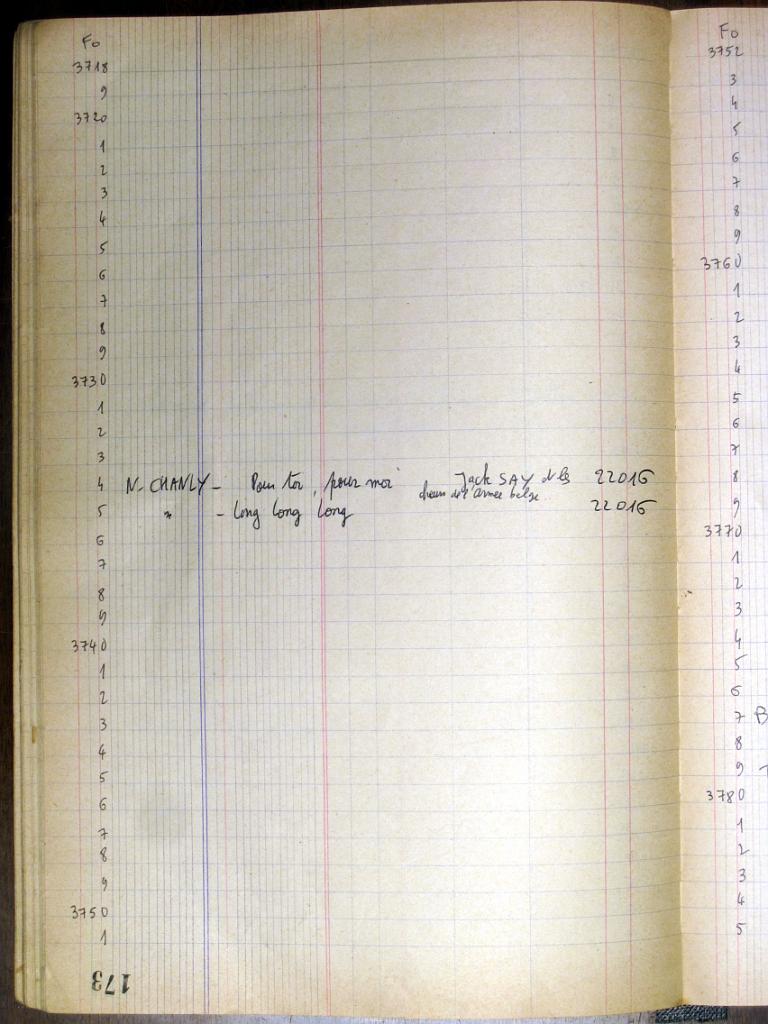 Fo
3718
9
3720
1
2
3
4
5
6
7
8
9
3730
1
2
3
4 N. CHANLY - Pour toi, pour moi Jack SAY et les 22016
chœurs de l'armée belge
5 " - Long Long Long 22016
6
7
8
9
3740
1
2
3
4
5
6
7
8
9
3750
1
173
Fo
3752
3
4
5
6
7
8
9
3760
1
2
3
4
5
6
7
8
9
3770
1
2
3
4
5
6
7 B
8
9
3780
1
2
3
4
5